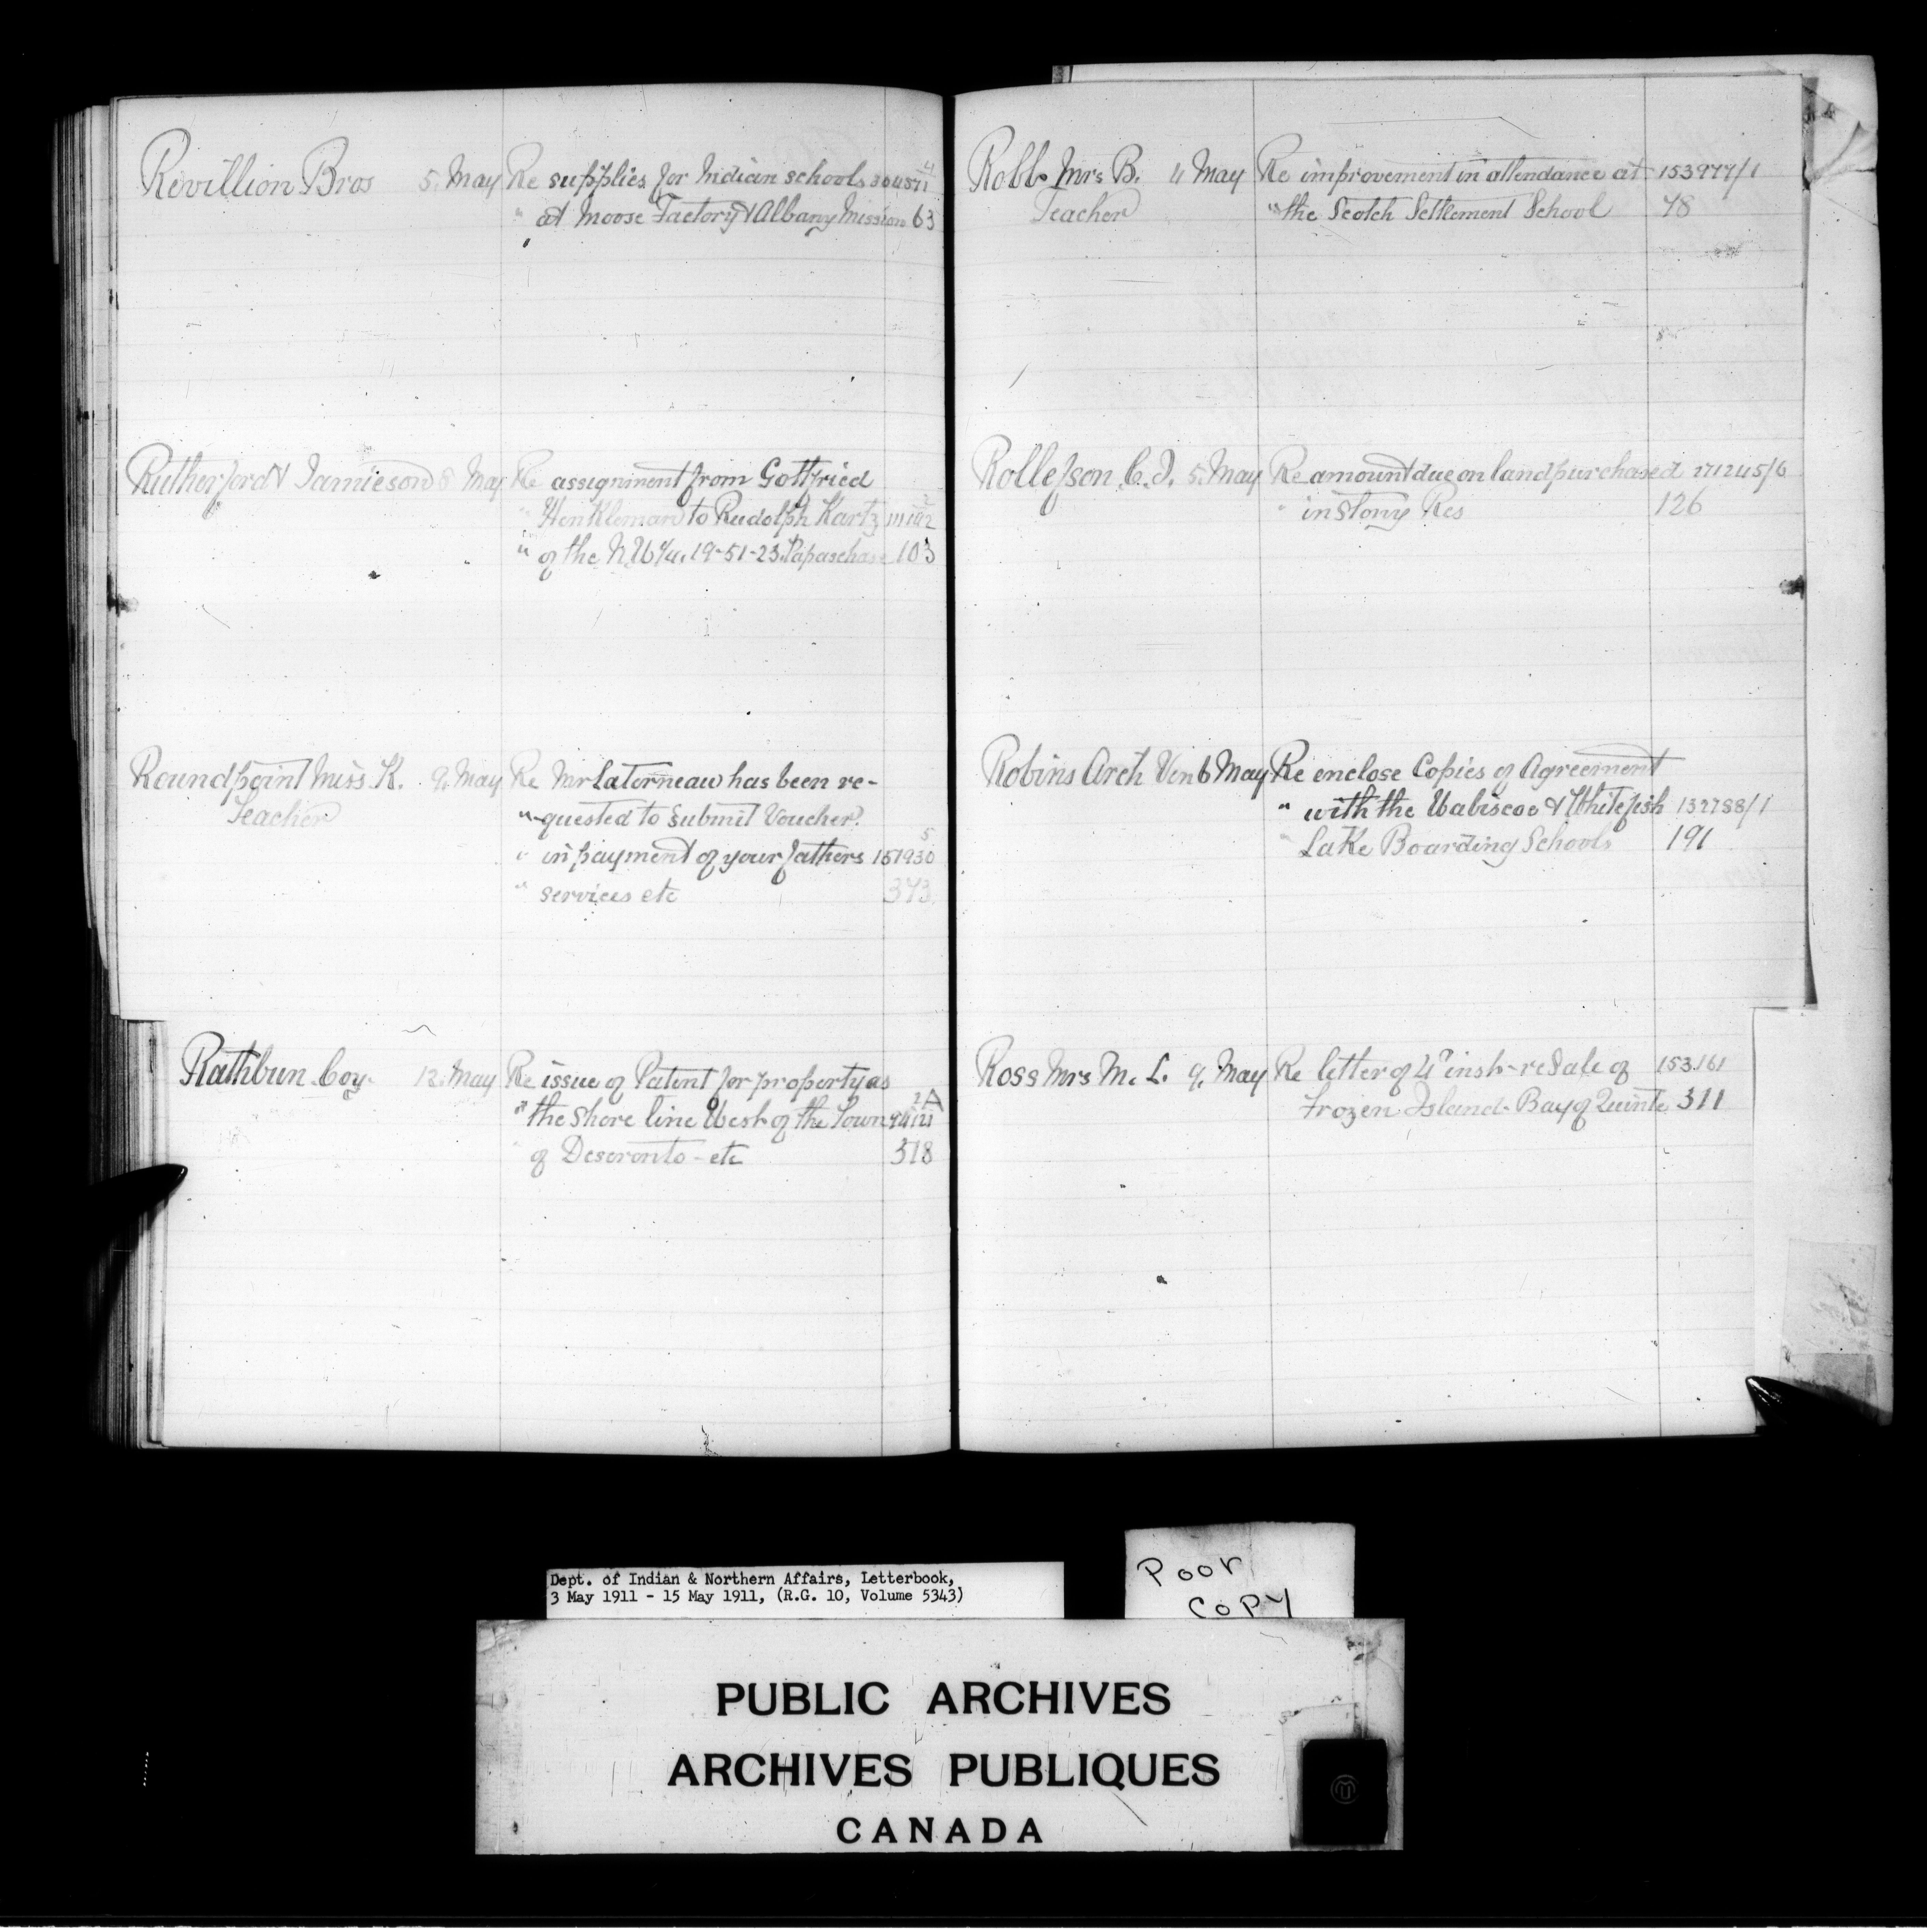 Revillion Bros 5. May Re supplies for Indian schools
" at Moose Factory & Albany Mission 63
Rutherford & Jamieson 8 May Re assignment from Gottfried
" Henkleman to Rudolph Kartz
" of the N.W ¼. 19-51-23. Papaschase 103
Roundpoint Miss K. 9. May Re Mr Laterneau has been re-
Teacher "-quested to submit Voucher.
" in payment of your fathers 151930
5
" services etc 373.
Rathbun Coy. 12. May Re issue of Patent for property as
" the shore line West of the Town
" of Deseronto - etc 318
Robb Mrs B. 4 May Re improvement in attendance at 153977/1
Teacher " the Scotch Settlement School 78
Rollefson C.J. 5. May Re amount due on land purchased 271245/6
" in Stony Res 126
Robins Arch Ven 6 May Re enclose Copies of Agreement
" with the Wabiscoe & Whitefish 137788/1
" Lake Boarding Schools 191
Ross Mrs M. L. 9. May Re letter of 4th inst - re Sale of 153.161
Frozen Island - Bay of Quinte 311
Dept. of Indian & Northern Affairs, Letterbook,
3 May 1911 - 15 May 1911, (R.G. 10, Volume 5343)
Poor
Copy
PUBLIC ARCHIVES
ARCHIVES PUBLIQUES
CANADA